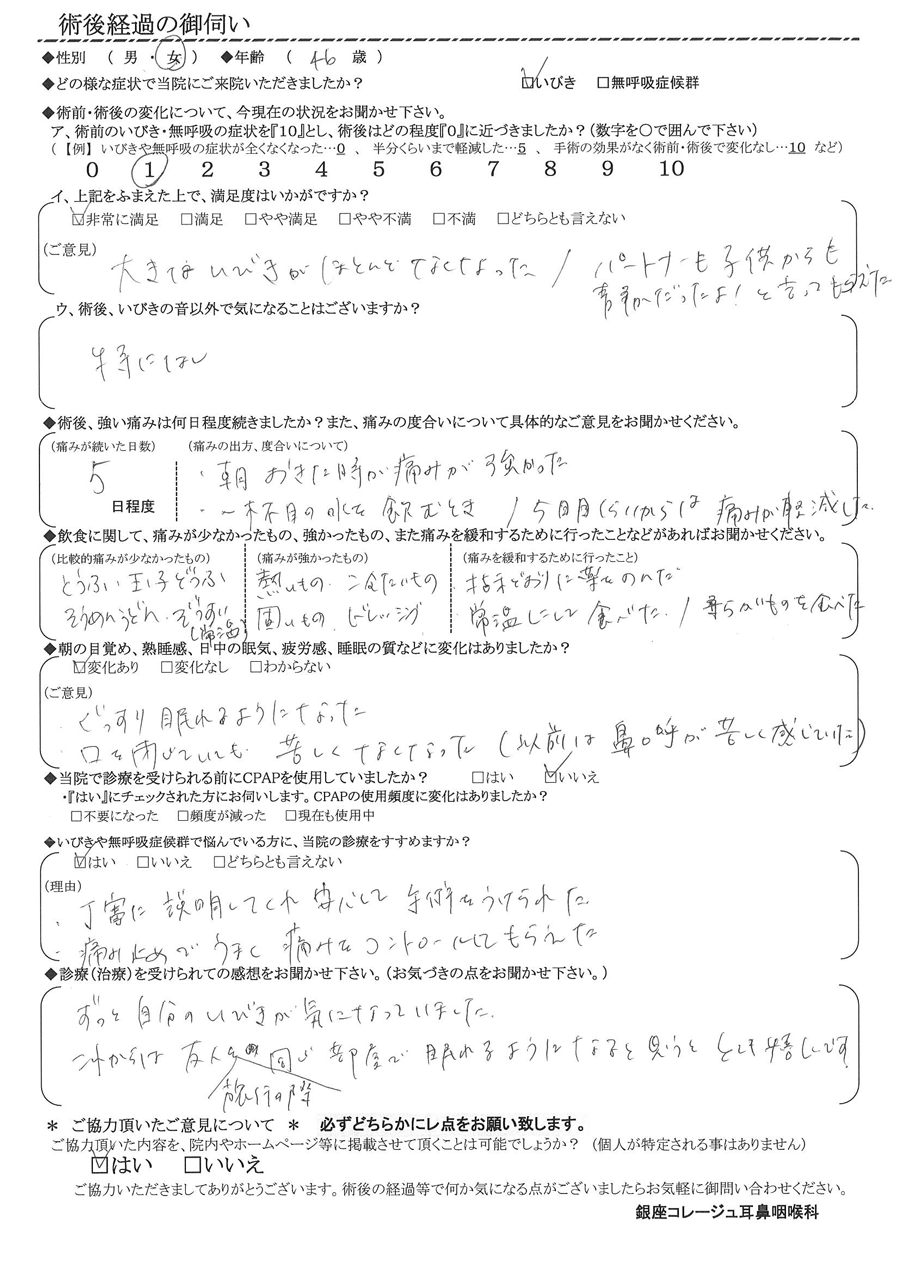 術後経過の御伺い
◆性別 （ 男 ・ 女 ） ◆年齢 （ 46 歳 ）
◆どの様な症状で当院にご来院いただきましたか？ ☑いびき □無呼吸症候群
◆術前・術後の変化について、今現在の状況をお聞かせ下さい。
ア、術前のいびき・無呼吸の症状を『10』とし、術後はどの程度『0』に近づきましたか？（数字を〇で囲んで下さい）
（【例】いびきや無呼吸の症状が全くなくなった…0 、 半分くらいまで軽減した…5 、 手術の効果がなく術前・術後で変化なし…10 など）
0 1 2 3 4 5 6 7 8 9 10
イ、上記をふまえた上で、満足度はいかがですか？
☑非常に満足 □満足 □やや満足 □やや不満 □不満 □どちらとも言えない
（ご意見）
大きないびきがほとんどなくなった / パートナーも子供からも
静かだったよ！と言ってもらえた
ウ、術後、いびきの音以外で気になることはございますか？
特になし
◆術後、強い痛みは何日程度続きましたか？また、痛みの度合いについて具体的なご意見をお聞かせください。
（痛みが続いた日数） （痛みの出方、度合いについて）
5 日程度
・朝おきた時が痛みが強かった
・一杯目の水を飲むとき / 5日目くらいからは痛みが軽減した
◆飲食に関して、痛みが少なかったもの、強かったもの、また痛みを緩和するために行ったことなどがあればお聞かせください。
（比較的痛みが少なかったもの） （痛みが強かったもの） （痛みを緩和するために行ったこと）
とうふい 玉子どうふ 熱いもの 冷たいもの 指示どおりに薬をのんだ
そうめんうどん ぞうすい 固いもの ドレッシング 常温にして食べた / 柔らかいものを食べた
（常温）
◆朝の目覚め、熟睡感、日中の眠気、疲労感、睡眠の質などに変化はありましたか？
☑変化あり □変化なし □わからない
（ご意見）
・ぐっすり眠れるようになった
・口を閉じていても苦しくなくなった（以前は鼻呼が苦しく感じていた）
◆当院で診療を受けられる前にCPAPを使用していましたか？ □はい ☑いいえ
・『はい』にチェックされた方にお伺いします。CPAPの使用頻度に変化はありましたか？
□不要になった □頻度が減った □現在も使用中
◆いびきや無呼吸症候群で悩んでいる方に、当院の診療をすすめますか？
☑はい □いいえ □どちらとも言えない
（理由）
・丁寧に説明してくれ安心して手術をうけられた
・痛み止めでうまく痛みをコントロールしてもらえた
◆診療（治療）を受けられての感想をお聞かせ下さい。（お気づきの点をお聞かせ下さい。）
ずっと自分のいびきが気になっていました。
これからは友人と 同じ部屋で眠れるようになると思うととても嬉しいです
旅行の際
＊ ご協力頂いたご意見について ＊ 必ずどちらかにレ点をお願い致します。
ご協力頂いた内容を、院内やホームページ等に掲載させて頂くことは可能でしょうか？ （個人が特定される事はありません）
☑はい □いいえ
ご協力いただきましてありがとうございます。術後の経過等で何か気になる点がございましたらお気軽に御問い合わせください。
銀座コレージュ耳鼻咽喉科